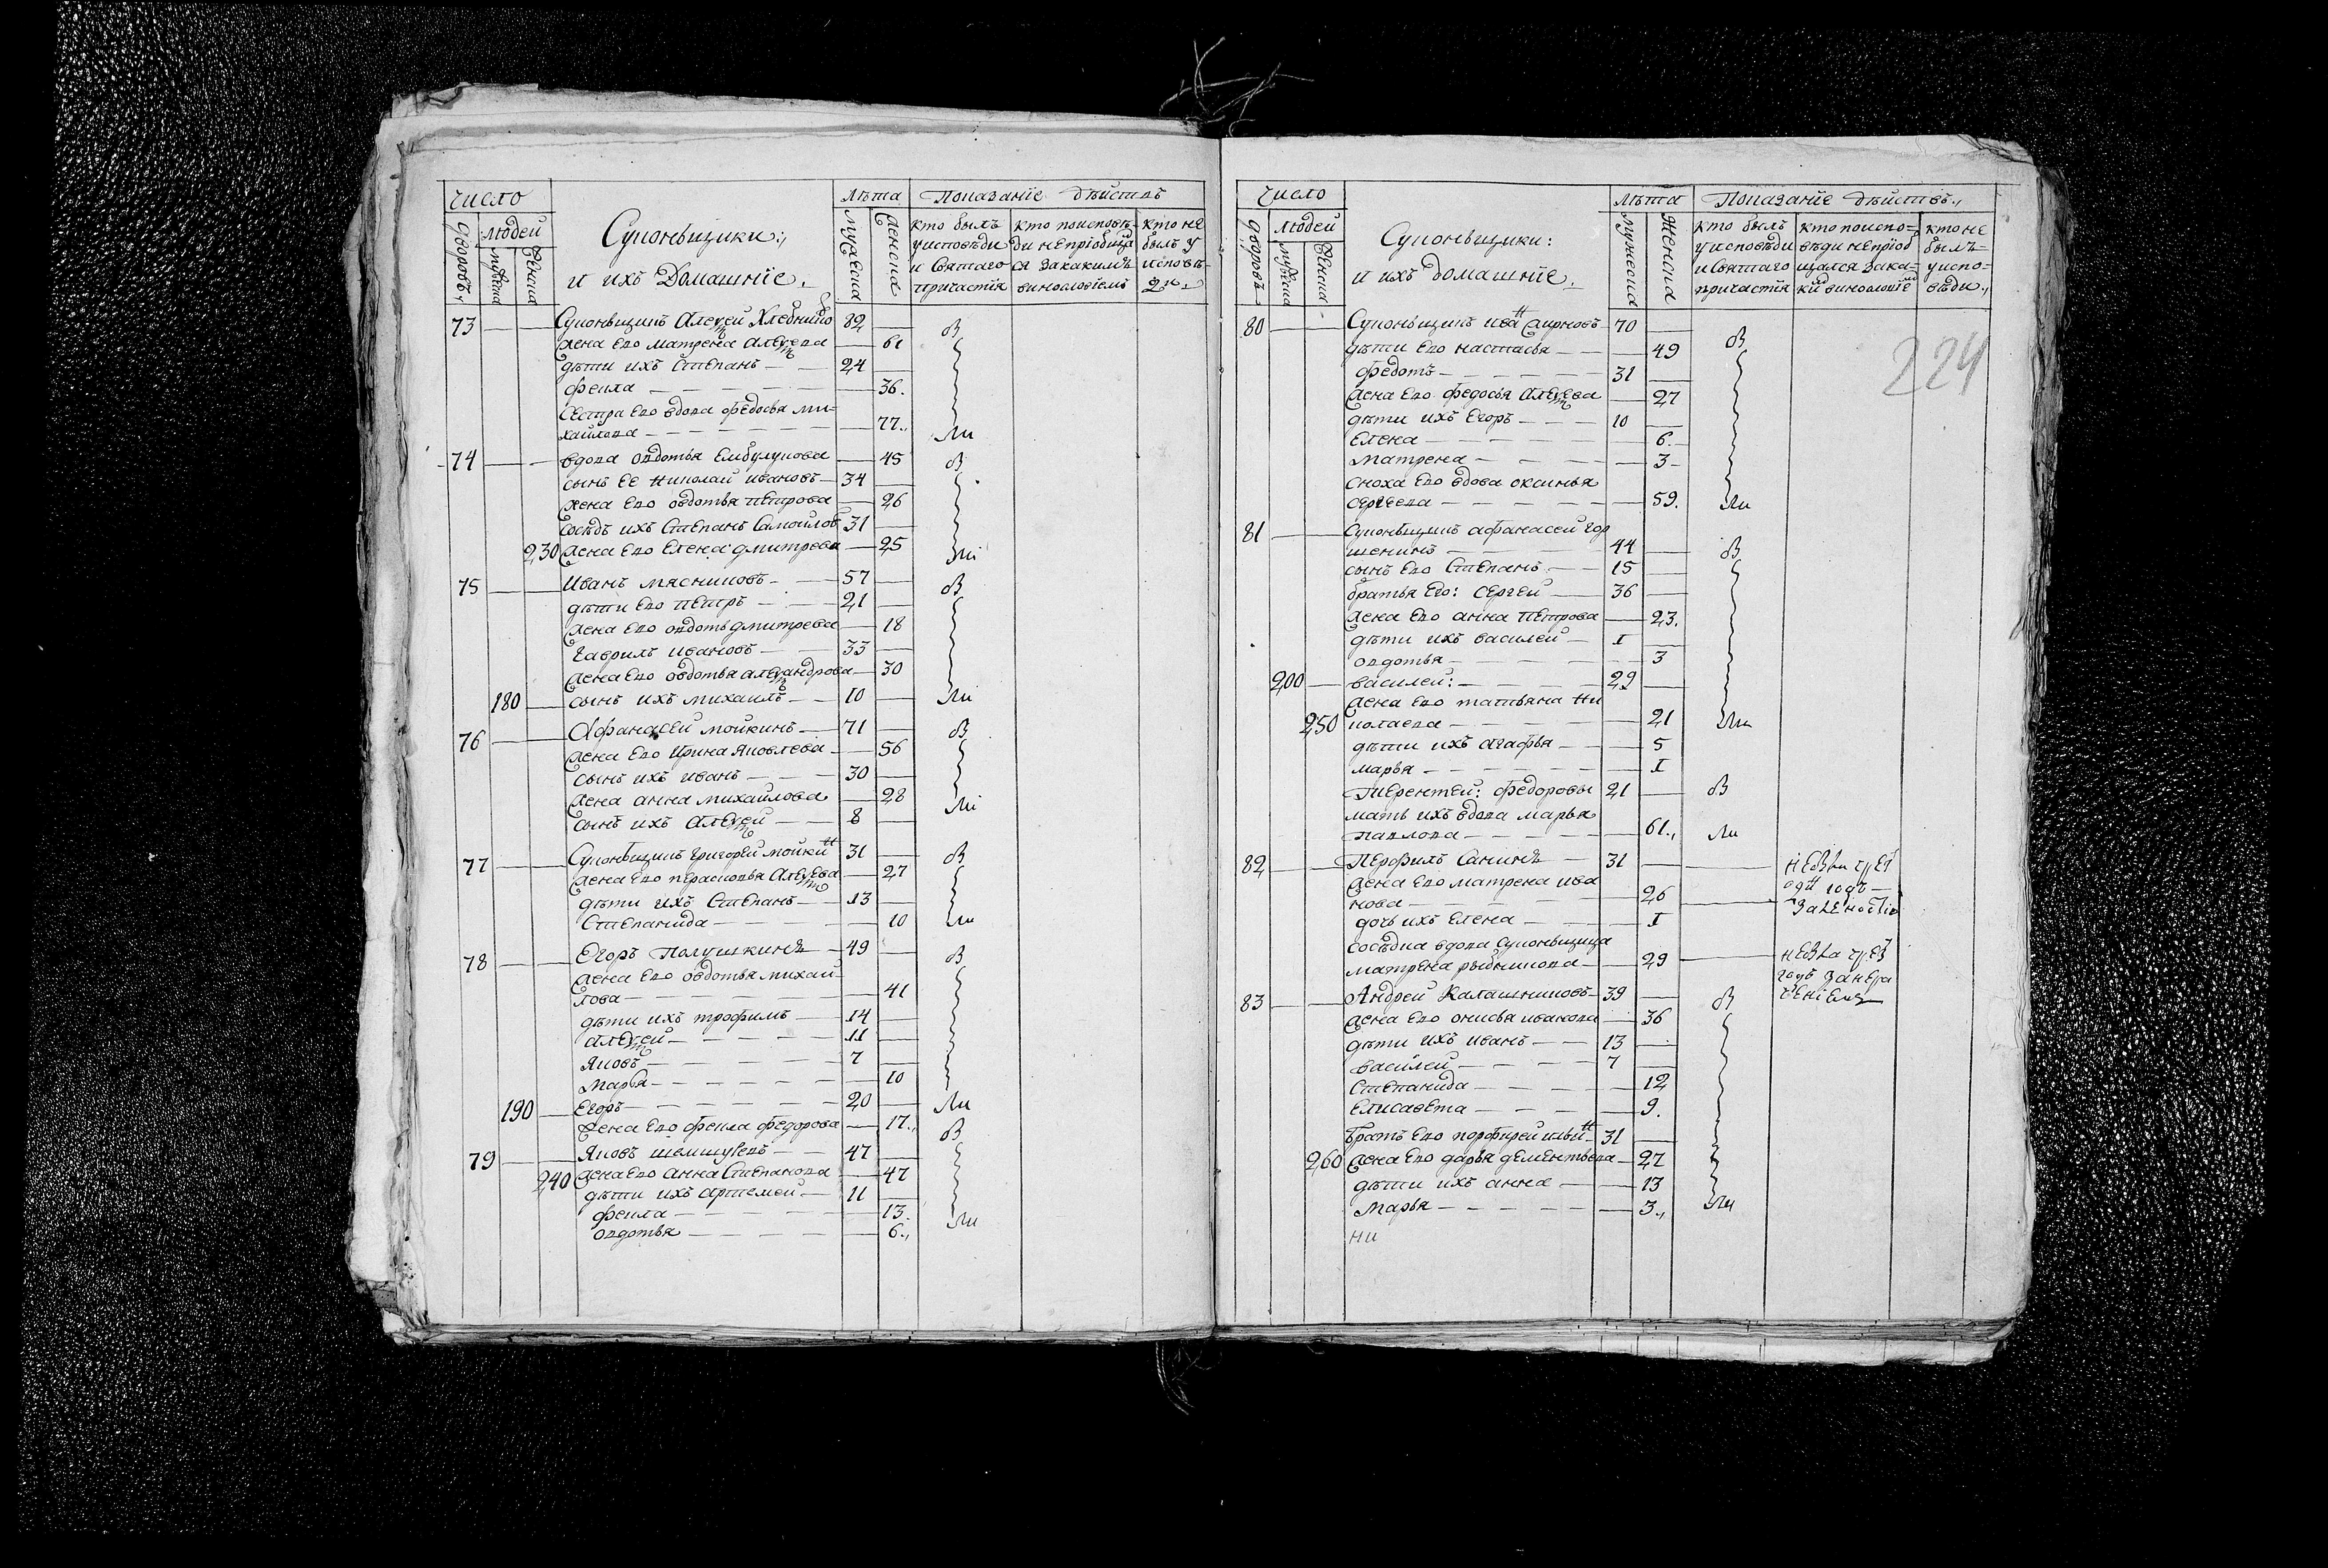 число
людей
дворовъ
мужеска
женска
Суконьщики
и ихъ Домашнїе
лѣта
мужеска
женска
Показанїе дѣйствъ
кто былъ у исповѣди и Святаго причастїя
кто поисповѣди непрїобщ
ся закакимъ винословїемъ
кто не былъ у исповѣ
73 Суконьщикъ Алеѯей Хлебнико 82
жена Ево матрена Алеѯева 61
дѣти ихъ Степанъ 24
фекла 36
сестра Ево вдова федосья ми=
хайлова 77
74 вдова овдотья 45
сынъ Ее николай ивановъ 34
жена Ево овдотья петрова 26
Сосѣдъ ихъ Степанъ Самойлов 31
230 жена Ево Елена дмитрева 25
75 Иванъ мясниковъ 57
дѣти Ево петръ 21
жена Ево овдоть дмитрева 18
гаврилъ ивановъ 33
жена Ево овдотья алеѯандрова 30
180 сынъ ихъ михаилъ 10
76 Афанасей мойкинъ 71
жена Ево ирина яковлева 56
сынъ ихъ иванъ 30
жена анна михайлова 28
сынъ ихъ Алеѯей 8
77 Суконьщикъ григорей мойкин 31
жена Ево парасковья Алеѯева 27
дѣти ихъ Степанъ 13
Степанида 10
78 Егоръ Полушкинъ 49
жена Ево овдотья михай
лова 41
дѣти ихъ трофимъ 14
алеѯей 11
яковъ 7
марья 10
190 Егоръ 20
жена Ево фекла федорова 17
79 Яковъ 47
240 жена Ево анна Степанова 47
дѣти ихъ артемей 11
фекла 13
овдотья 6
число
людей
дворовъ
мужеска
женска
Суконьщики:
и ихъ домашнїе
лѣта
мужеска
женска
Показанїе дѣйствъ
кто былъ у исповѣди и Святаго причастїя
кто поиспо=
вѣди непрїоб
щался зака=
кто не былъ= у испо=
вѣди
224
80 Суконьщикъ иван Смирновъ 70
дѣти Ево настасья 49
федотъ 31
жена Ево федосья Алеѯева 27
дѣти ихъ Егоръ 10
Елена 6
матрена 3
сноха Ево вдова оксинья
сергеева 59
81 Суконьщикъ афанасей гор
шенинъ 44
сынъ Ево Степанъ 15
братья Его: сергей 36
жена Ево анна петрова 23
дѣти ихъ василей I
овдотья 3
200 василей: 29
жена Ево татьяна ни
250 колаева 21
дѣти ихъ агафья 5
марья I
терентей: федоровы 21
мать ихъ вдова марья
павлова 61
82 Перфилъ Санинъ 31
жена Ево матрена ива
нова 26
дочь ихъ Елена I
сосѣдка вдова суконьщица
матрена рыбникова 29
83 Андрей Калашниковъ 39
жена Ево онисья иванова 36
дѣти ихъ иванъ 13
василей 7
Степанида 12
Елисавета 9
братъ Ево порфирей ильин 31
260 жена Ево дарья дементьева 27
дѣти ихъ анна 13
марья 3
ни